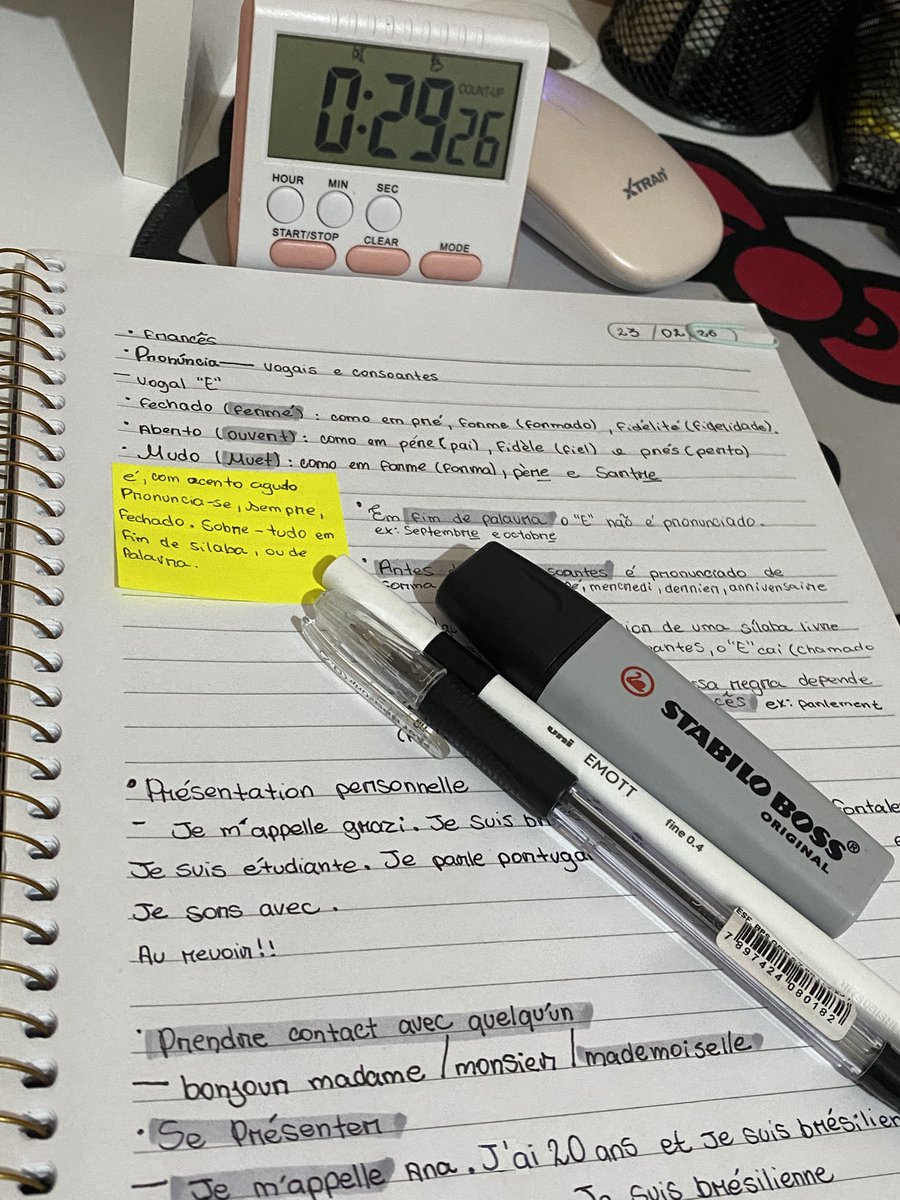 COUNT-UP
0:29 26
HOUR MIN SEC
START/STOP CLEAR MODE
XTRAN
23/02/26
• Francês
• Pronúncia — vogais e consoantes
— Vogal "E"
• Fechado (fermé): como em pré, forme (formado), fidélité (fidelidade).
• Aberto (ouvert): como em pére (pai), Fidèle (fiel) e prés (perto)
• Mudo (Muet): como em forme (forma), père e Santre
é, com acento agudo
Pronuncia-se, sempre,
fechado. Sobre-tudo em
fim de sílaba, ou de
Palavra.
• Em fim de palavra o "E" não é pronunciado.
ex: Septembre e octobre
• Antes soantes é pronunciado de
forma mercredi, dernier, anniversaire
ion de uma sílaba livre
antes, o "E" cai (chamado
ssa regra depende
cês ex: parlement
• Présentation personnelle
- Je m'appelle grazi. Je suis
Je suis étudiante. Je parle portuga
Je sons avec.
Au revoir!!
• Prendre contact avec quelqu'un
— bonjour madame / monsier / mademoiselle
• Se Présenter
— Je m'appelle Ana. J'ai 20 ans et je suis brésilien
Je suis brésilienne
STABILO BOSS®
ORIGINAL
uni EMOTT fine 0.4
7 897424 080182